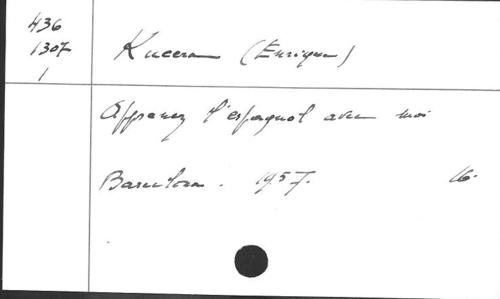 436
1307
1
Kucera (Enrique)
Apprenez l'espagnol avec moi
Barcelona. 1957. 16.